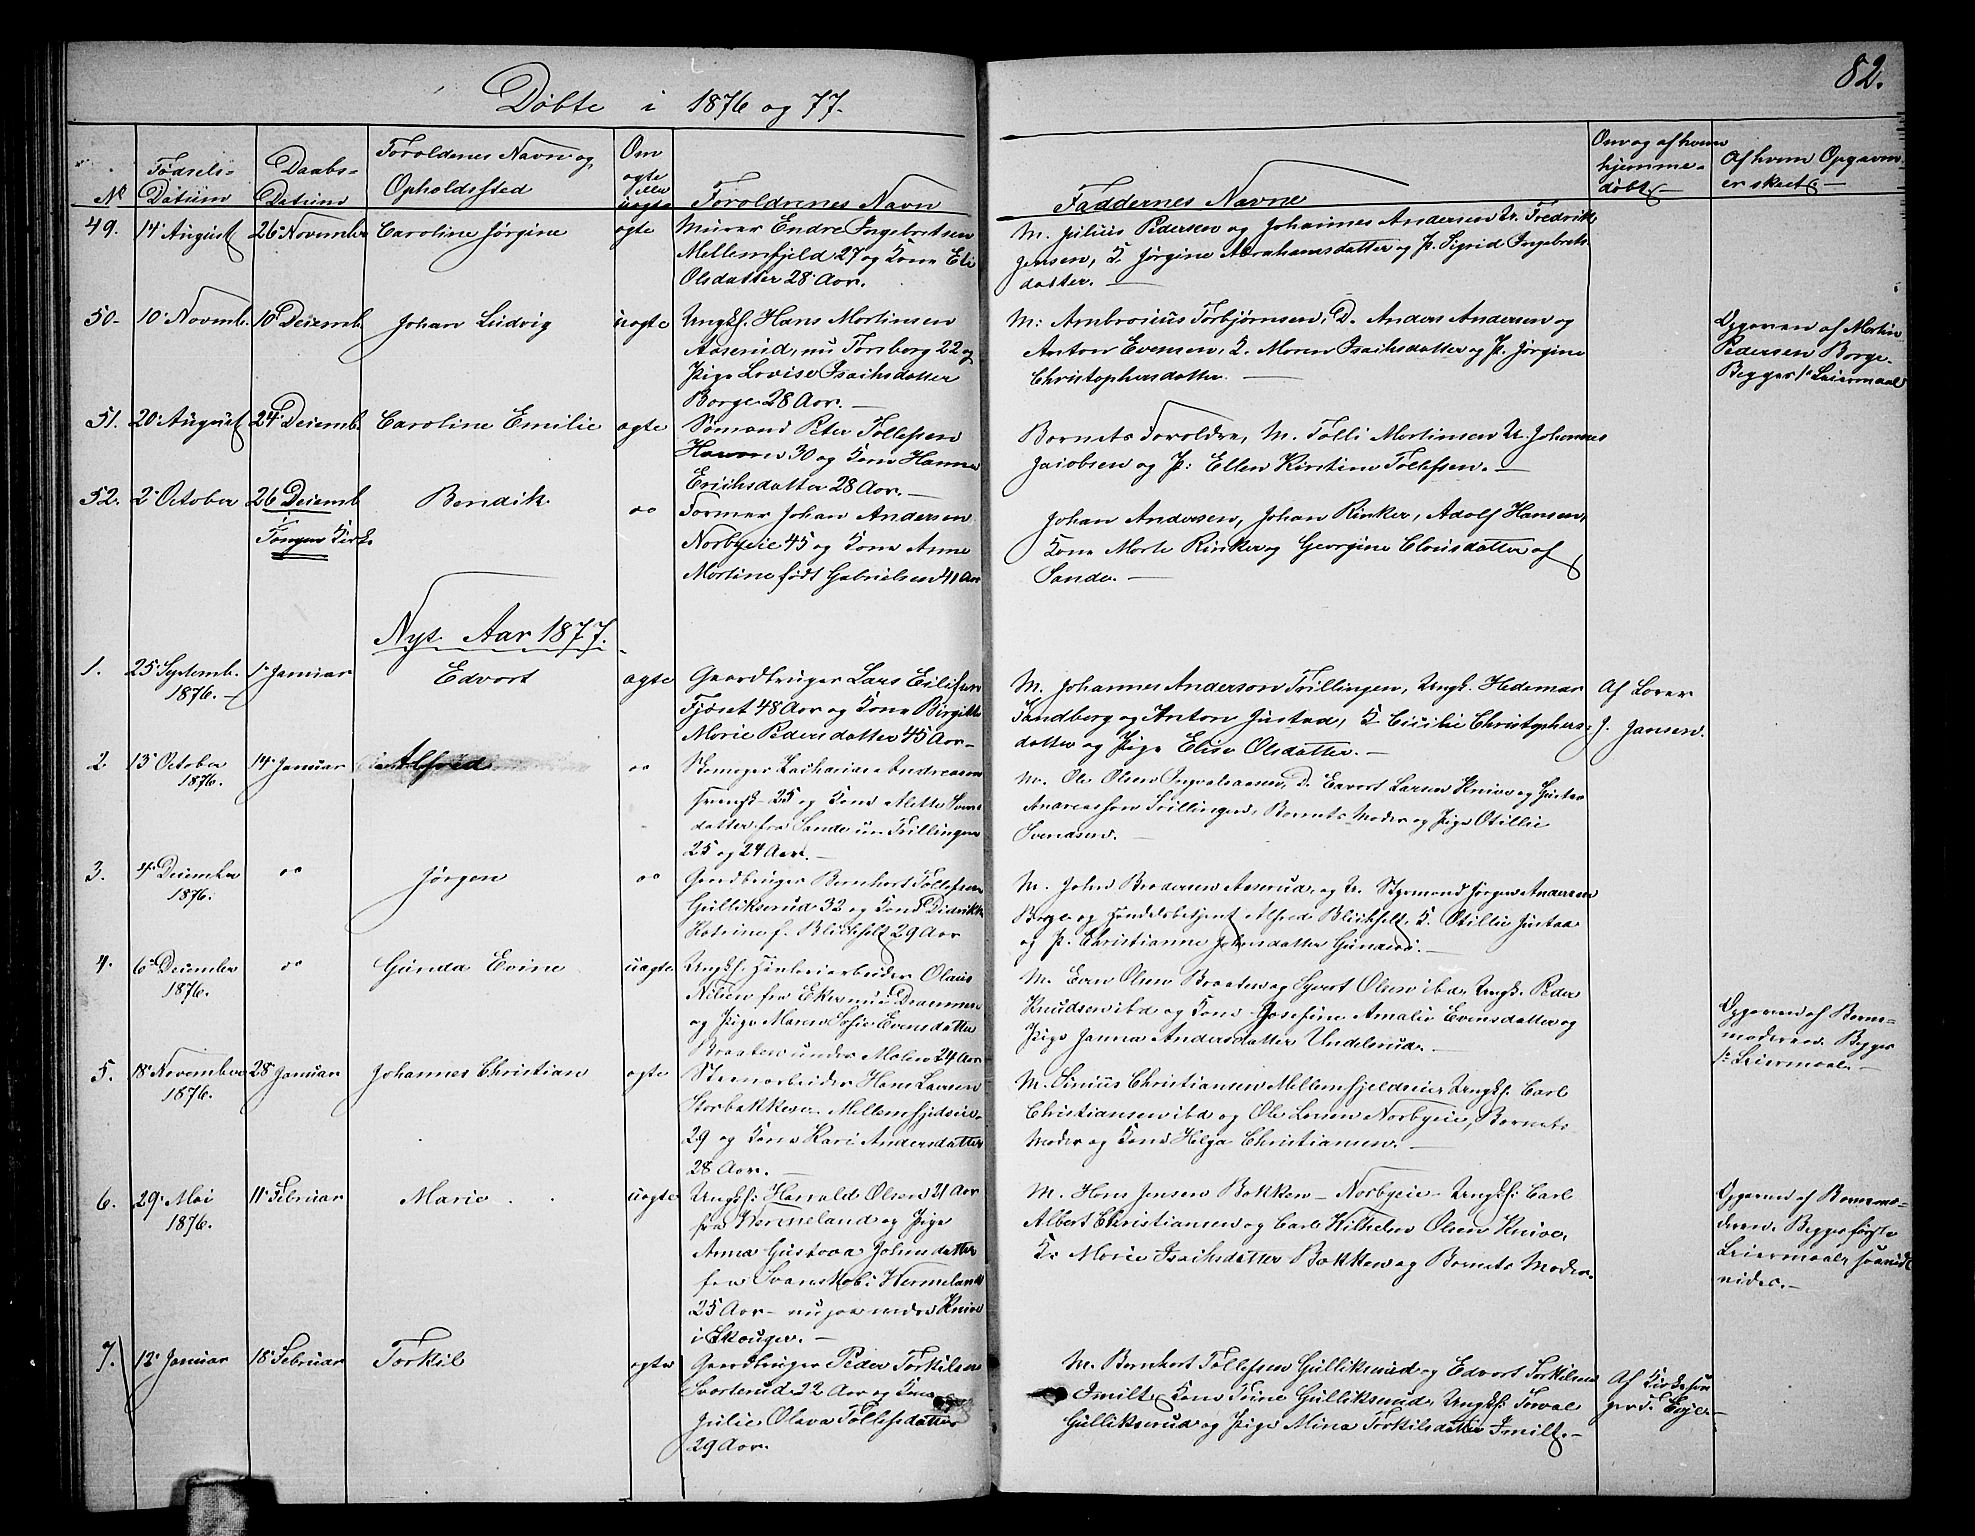 82.
Döbte i 1876 og 77.
No
Födsels-
Datum
Daabs-
Datum
Foroldrenes Navn og
Opholdssted
Om
ægte
eller
uægte
Foroldrenes Navn
Faddernes Navne
Om og af hvem
hjemme-
döbt
Af hvem Opgaven
er skeet
49. 14 August 26 November Caroline Jörgine ægte
Murer Endre Ingebretsen
Mellemfjeld 27 og Kone Eli
Olsdatter 28 Aar.
M. Julius Pedersen og Johannes Andersen U. Fredrik
Jensen, K. Jörgine Abrahamsdatter og P. Sigrid Ingebrets
datter.
50. 10 Novemb. 10 Decemb. Johan Ludvig uægte
Ungkf. Hans Martinsen
Aaserud, nu Forsberg 22 og
Pige Lovise Isachsdatter
Borge 28 Aar.
M: Ambrosius Torbjørnsen, D. Anders Andersen og
Anton Evensen, K. Maren Isachsdatter og P. Jörgine
Christophersdatter.
Opgaven af Martin
Pedersen Borge.
Begges 1ste Leiermaal
51. 20 August 24 Decemb. Caroline Emilie ægte
Sömand Peter Tollefsen
30 og Kone Hanna
Erichsdatter 28 Aar.
Barnets Foroldre, M. Tolli Martinsen U. Johannes
Jacobsen og P: Ellen Kirstine Tollefsen.
52. 2 October 26 Decemb. Bendik oo
i
Tangen Kirke
Former Johan Andersen
Norbyeie 45 og Kone Anne
Martine födt Gabrielsen 41 Aar
Johan Andersen, Johan Rinker, Adolf Hansen,
Kone Marte Rinker og Georgine Clausdatter af
Sande.
Nyt Aar 1877.
1. 25 Septemb. 1 Januar Edvart ægte
1876.
Gaardbruger Lars Eilifsen
Fjöset 48 Aar og Kone Birgitte
Marie Pedersdatter 45 Aar
M. Johannes Anderson Trillingen, Ungk. Hedemar
Sandberg og Anton Justad, K. Cicilie Christophers-
datter og Pige Elise Olsdatter.
Af Lærer
J. Jansen.
2. 13 October 14 Januar Alfred oo
1876.
Skomager Zacharias Andreassen
Svensk 25 og Kone Alette Svens
datter fra Sande un Trillingen
25 og 24 Aar.
M. Ole Olsen Ingvaldsaasen, D. Edvart Larsen Knive og Gustav
Andreassen Trillingen, Barnets Moder og Pige Otillie
Svendsen.
3. 4 December oo Jörgen oo
1876.
Gaardbruger Bernhart Tollefsen
Gulliksrud 32 og Kone Didrikke
Katrine f. Blichfelt 29 Aar
M. John Brodersen Aaserud, og U. Styrmand Jörgen Andersen
Borge og Handelsbetjent Alfred Blichfelt, K. Otillie Justad
og P. Christianne Johnsdatter Gunderö.
4. 6 December oo Gunda Evine uægte
1876.
Ungkf. Tinteriarbeider Olaus
Nilsen fra Eker nu Drammen
og Pige Maren Sofie Evensdatter
Braaten under Molen 24 Aar
M. Even Olsen Braaten og Syvert Olsen ibd, Ungk. Peder
Knudsen ibd og Kone Josefine Amalie Evensdatter og
Pige Janna Andersdatter Undelrud.
Opgaven af Barne-
moderen. Begges
1ste Leiermaal.
5. 18 November 28 Januar Johannes Christian ægte
1876.
Stenarbeider Hans Larsen
Storbakken Mellemfjeldseie
29 og Kone Kari Andersdatter
28 Aar.
M. Sinius Christiansen Mellemfjeldseie, Ungkf. Carl
Christiansen ibd og Ole Larsen Norbyeie, Barnets
Moder og Kone Helga Christiansen.
6. 29 Mai 11 Februar Marie uægte
1876.
Ungkf: Harrald Olsen 21 Aar
fra Wermeland og Pige
Anna Gustava Johnsdatter
fra Svanskob i Wermeland
25 Aar nu paa Knive
i Skouger.
M. Hans Jensen Bakken Norbyeie Ungkf: Carl
Albert Christiansen og Carl Wilhelm Olsen Knive,
K. Marie Isachsdatter Bakken og Barnets Moder.
Opgaven af Barnemo-
deren. Begges første
Leiermaal, saavidt
vides.
7. 12 Januar 18 Februar Torkil ægte
Gaardbruger Peder Torkilsen
Svarterud 22 Aar og Kone
Julie Olava Tollefsdatter
29 Aar.
M. Bernhart Tollefsen Gulliksrud og Edvart Torkilsen
Smilt, Kone Trine Gulliksrud, Ungkf: Torval
Gulliksrud og Pige Mina Torkilsdatter Smilt.
Af Kirkesan
gerd. Evje.